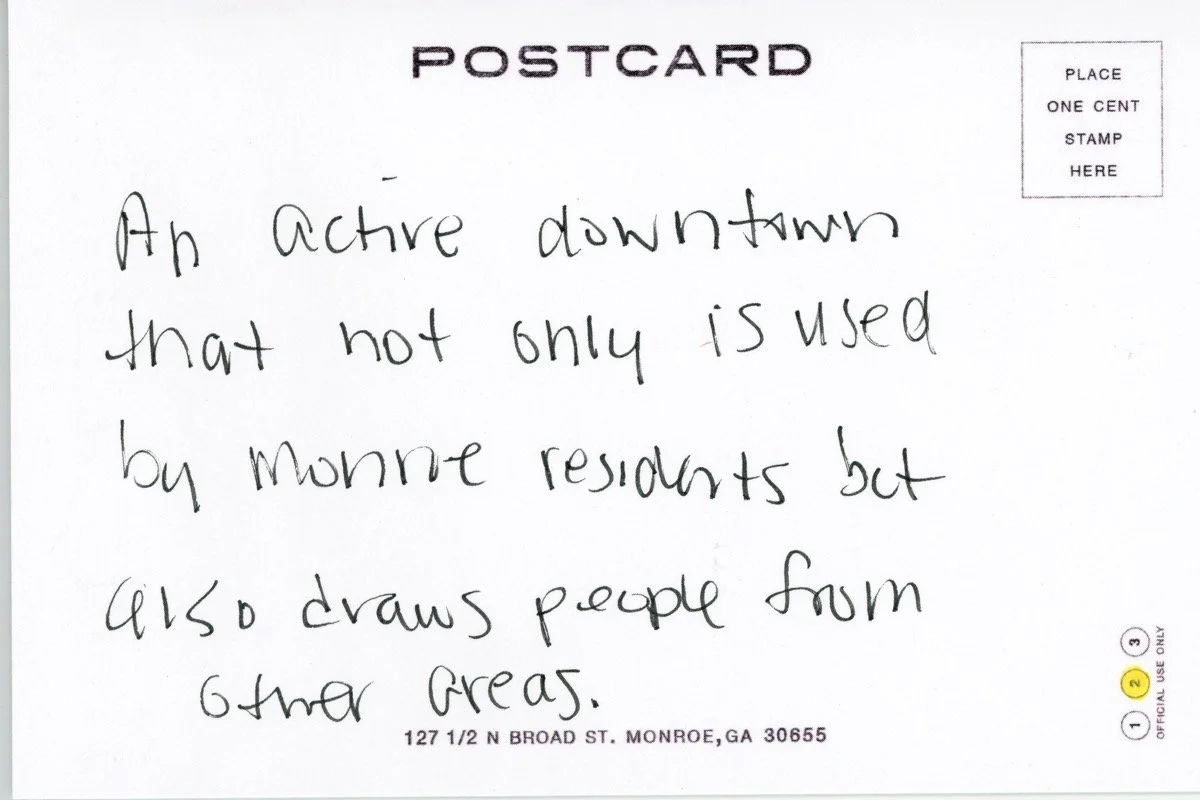 POSTCARD
PLACE
ONE CENT
STAMP
HERE
An active downtown
that not only is used
by Monroe residents but
also draws people from
other areas.
127 1/2 N BROAD ST. MONROE, GA 30655
1 2 3
OFFICIAL USE ONLY